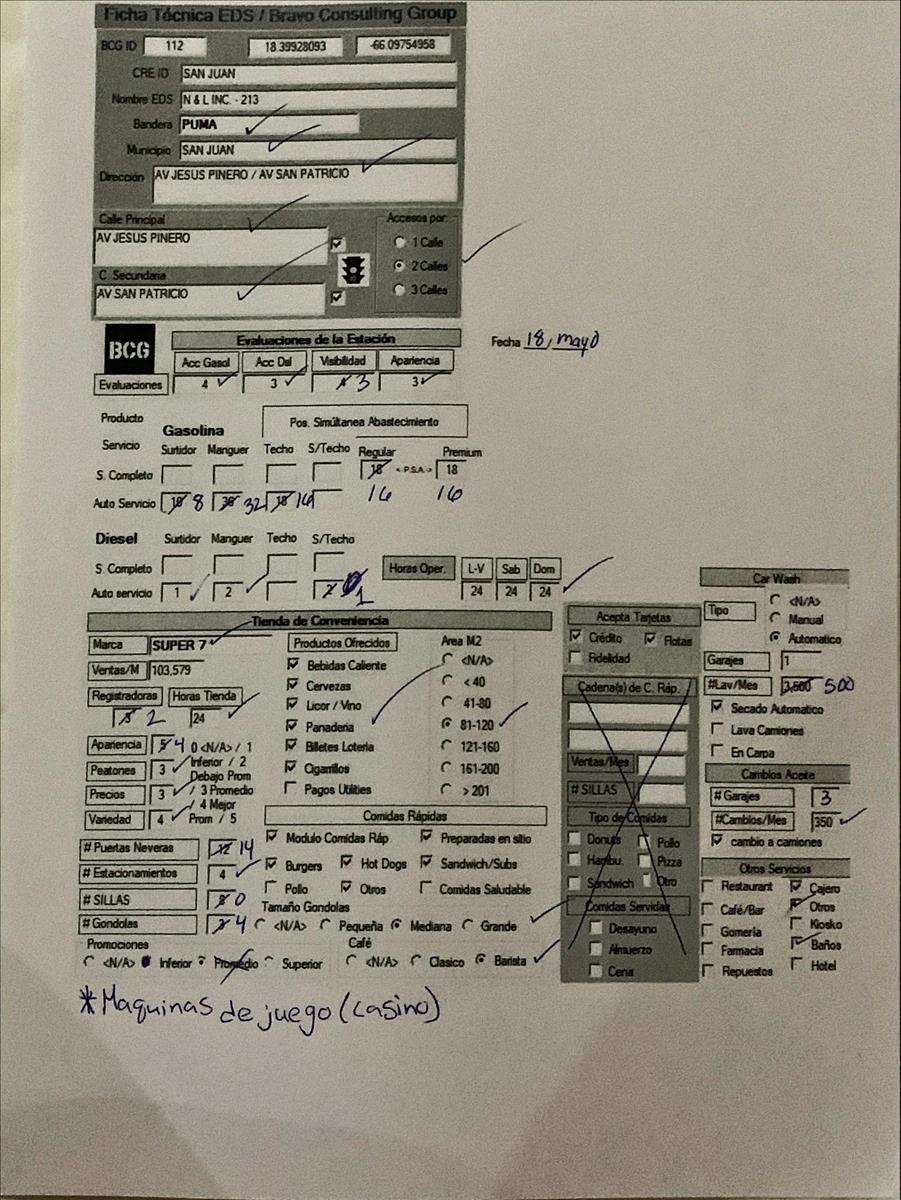 Ficha Técnica EDS / Bravo Consulting Group
BCG ID 112 18.39928093 -66.09754958
CRE ID SAN JUAN
Nombre EDS N & L INC. - 213
Bandera PUMA
Municipio SAN JUAN
Dirección AV JESUS PINERO / AV SAN PATRICIO
Calle Principal
AV JESUS PINERO
C. Secundaria
AV SAN PATRICIO
Accesos por:
1 Calle
2 Calles
3 Calles
BCG
Evaluaciones de la Estación
Fecha 18, mayo
Acc Gasol Acc Dsl Visibilidad Apariencia
Evaluaciones 4 3 4 3 3
Producto Gasolina Pos. Simúltanea Abastecimiento
Servicio Surtidor Manguer Techo S/Techo Regular Premium
S. Completo 18 < P.S.A > 18
16 16
Auto Servicio 8 32 18 16
Diesel Surtidor Manguer Techo S/Techo
S. Completo
Horas Oper. L-V Sab Dom
24 24 24
Auto servicio 1 2 2 1
Tienda de Conveniencia
Marca SUPER 7
Ventas/M 103,579
Registradoras Horas Tienda
2 24
Apariencia 5 4 0 <N/A> / 1
Peatones 3 Inferior / 2
Debajo Prom
Precios 3 / 3 Promedio
/ 4 Mejor
Variedad 4 Prom / 5
# Puertas Neveras 12 14
# Estacionamientos 4
# SILLAS 0
# Gondolas 4
Promociones
<N/A> Inferior Promedio Superior
Productos Ofrecidos
Bebidas Caliente
Cervezas
Licor / Vino
Panaderia
Billetes Loteria
Cigarrillos
Pagos Utilities
Area M2
<N/A>
< 40
41-80
81-120
121-160
161-200
> 201
Comidas Rápidas
Modulo Comidas Ráp Preparadas en sitio
Burgers Hot Dogs Sandwich/Subs
Pollo Otros Comidas Saludable
Tamaño Gondolas
<N/A> Pequeña Mediana Grande
Café
<N/A> Clasico Barista
Acepta Tarjetas
Crédito Flotas
Fidelidad
Cadena(s) de C. Ráp.
Ventas/Mes
# SILLAS
Tipo de Comidas
Donuts Pollo
Hambu. Pizza
Sandwich Otro
Comidas Servidas
Desayuno
Almuerzo
Cena
Car Wash
Tipo <N/A>
Manual
Automatico
Garajes 1
#Lav/Mes 3,500 500
Secado Automatico
Lava Camiones
En Carpa
Cambios Aceite
# Garajes 3
#Cambios/Mes 350
cambio a camiones
Otros Servicios
Restaurant Cajero
Café/Bar Otros
Gomería Kiosko
Farmacia Baños
Repuestos Hotel
*Maquinas de juego (casino)